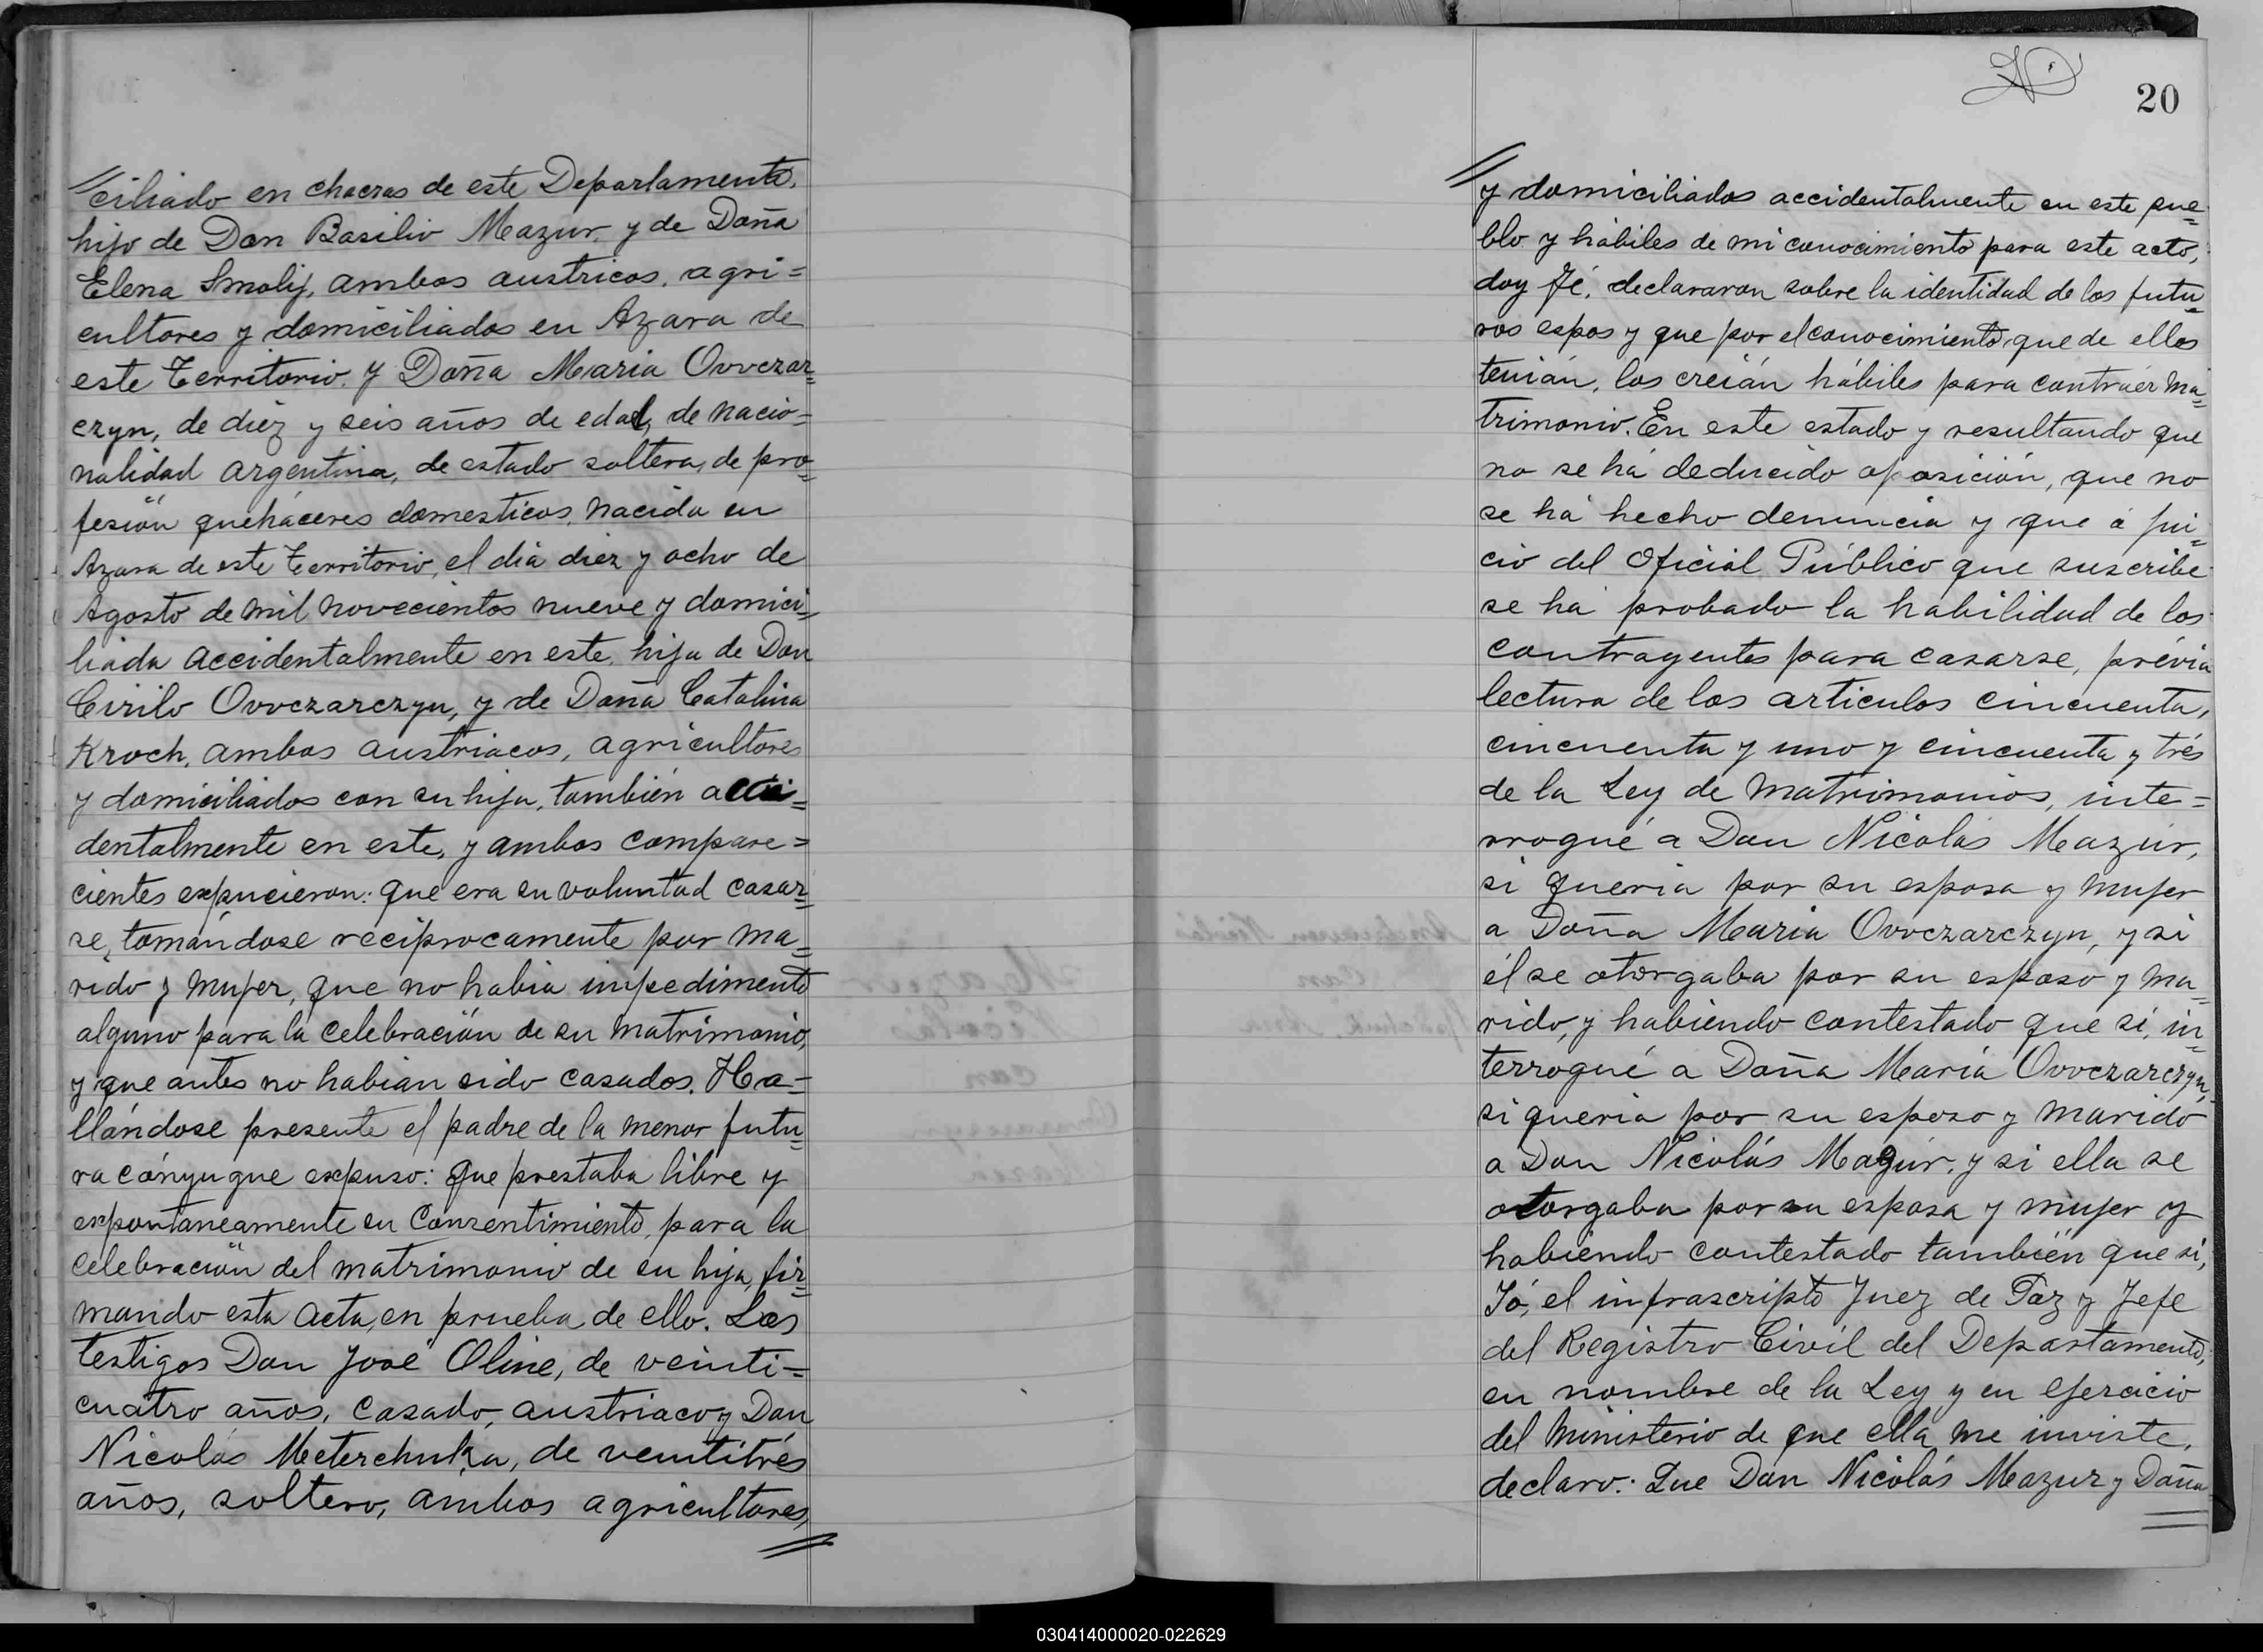 //ciliado en chacras de este Departamento,
hijo de Don Basilio Mazur, y de Doña
Elena Smolij, ambos austricos, agri=
cultores y domiciliados en Azara de
este Territorio. Y Doña Maria Ovvczar=
czyn, de diéz y seis años de edad, de nacio=
nalidad argentina, de estado soltera, de pro=
fesión quehaceres domesticos, nacida en
Azara de este Territorio, el dia diez y ocho de
Agosto de mil novecientos nueve y domici=
liada accidentalmente en este, hija de Don
Cirilo Ovvczarczyn, y de Doña Catalina
Kroch, ambos austriacos, agricultores
y domiciliados con su hija, también acci=
dentalmente en este, y ambos compare=
cientes expucieron: que era su voluntad casar=
se, tomándose reciprocamente por ma=
rido y mujer, que no habia impedimento
alguno para la celebración de su matrimonio,
y que antes no habian sido casados. Ha=
llándose presente el padre de la menor futu=
ra cónyugue expuso: que prestaba libre y
expontaneamente su consentimiento, para la
celebración del matrimonio de su hija, fir=
mando esta acta, en prueba de ello. Los
testigos Don José Oline, de veinti=
cuatro años, casado, austriaco y Don
Nicolás Meterchuka, de veintitrés
años, soltero, ambos agricultores,
//
20
//
y domiciliados accidentalmente en este pue=
blo y hábiles de mi conocimiento para este acto,
doy fé, declararon sobre la identidad de los futu=
ros espos y que por el conocimiento que de ellos
tenián, los creián hábiles para contraér ma=
trimonio. En este estado y resultando que
no se há deducido oposición, que no
se há hecho denuncia y que á jui=
cio del Oficial Público que suscribe
se há probado la habilidad de los
contrayentes para casarse, prévia
lectura de los articulos cincuenta,
cincuenta y uno y cincuenta y trés
de la Ley de Matrimonios, inte=
rrogué a Don Nicolás Mazúr,
si queria por su esposa y mujer
a Doña Maria Ovvczarczyn, y si
él se otorgaba por su esposo y ma=
rido, y habiendo contestado que si, in=
terrogué a Doña Maria Ovvczarczyn,
si queria por su esposo y marido
a Don Nicolás Mazúr, y si ella se
otorgaba por su esposa y mujer y
habiendo contestado también que si,
Yó, el infrascripto Juez de Paz y Jefe
del Registro Civil del Departamento,
en nombre de la Ley y en ejercicio
del ministerio de que ella me inviste,
declaro: Que Don Nicolás Mazur y Doña
030414000020-022629